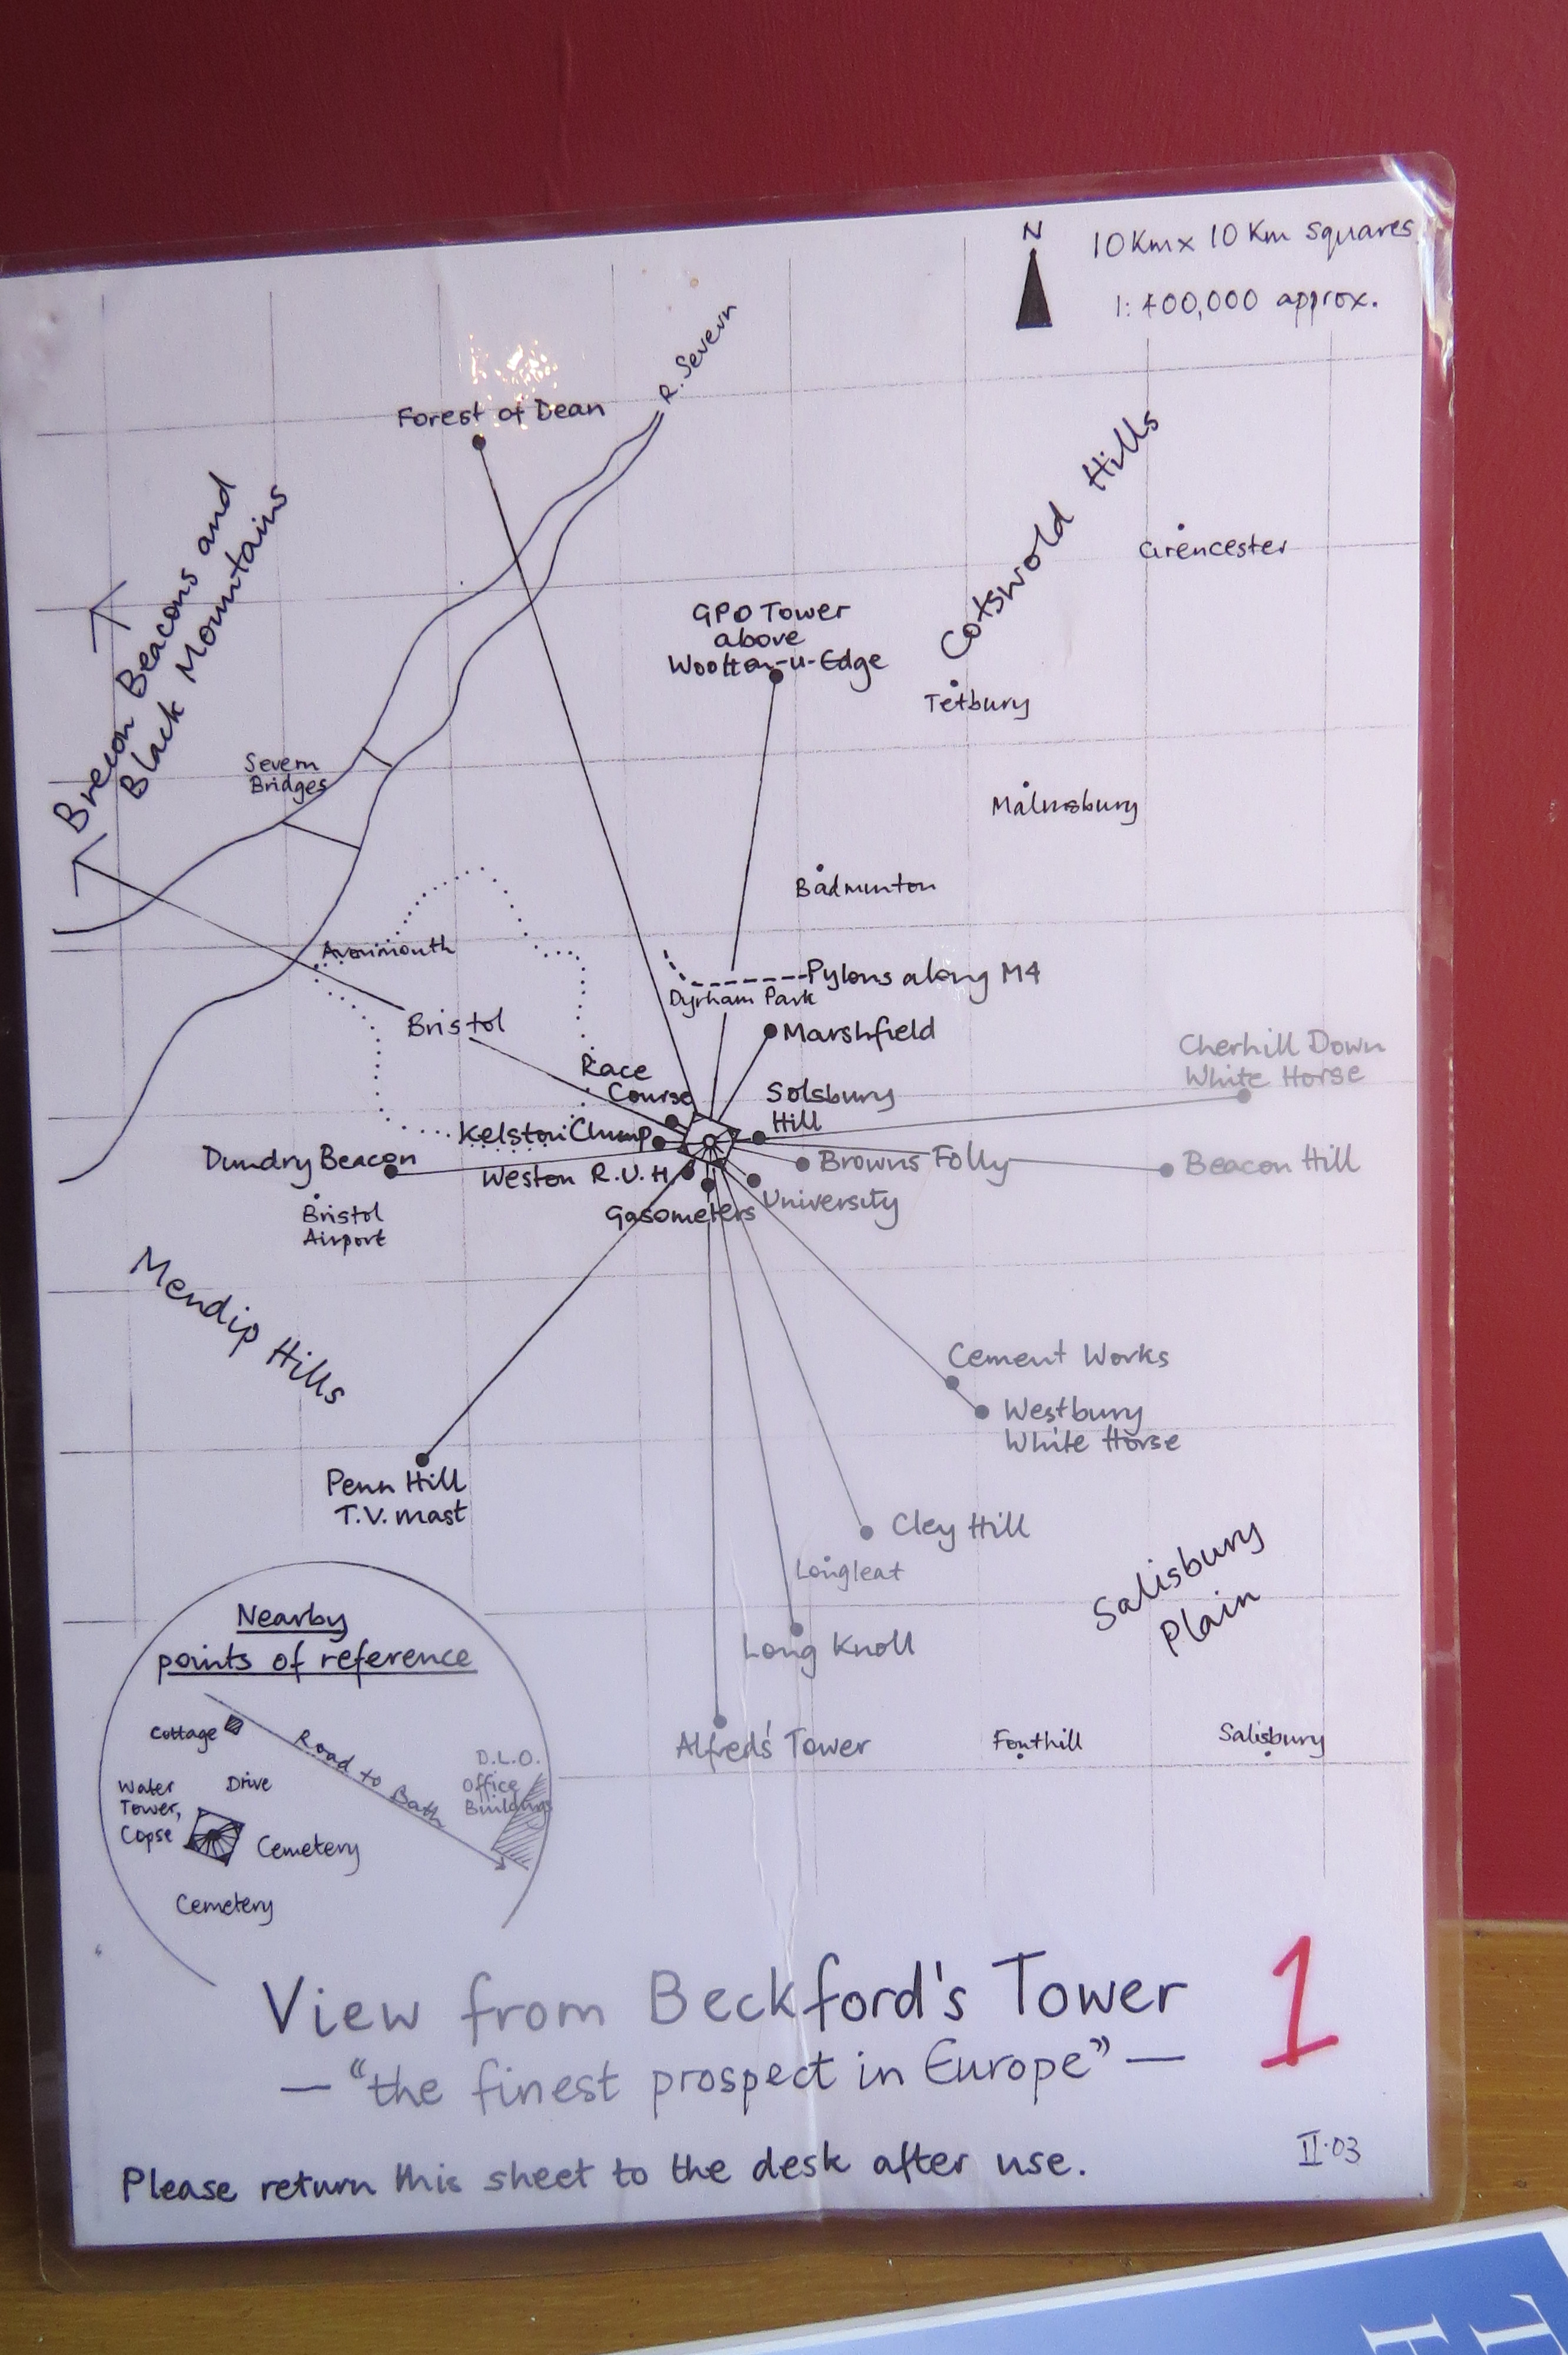 N
10Km x 10 Km squares.
1:400,000 approx.
R. Severn
Forest of Dean
Cotswold Hills
Cirencester
Brecon Beacons and
Black Mountains
GPO Tower
above
Wootton-u-Edge
Tetbury
Severn
Bridges
Malmsbury
Badminton
Avonmouth
Pylons along M4
Dyrham Park
Bristol
Marshfield
Cherhill Down
White Horse
Race
Course
Solsbury
Hill
Kelston Clump
Dundry Beacon
Weston R.U.H.
Browns Folly
Beacon Hill
University
Gasometers
Bristol
Airport
Mendip Hills
Cement Works
Westbury
White Horse
Penn Hill
T.V. mast
Cley Hill
Longleat
Salisbury
Plain
Long Knoll
Alfred's Tower
Fonthill
Salisbury
Nearby
points of reference
Cottage
Road to Bath
D.L.O.
Office
Buildings
Water
Tower,
Copse
Drive
Cemetery
Cemetery
View from Beckford's Tower
— "the finest prospect in Europe" —
1
Please return this sheet to the desk after use.
II·03